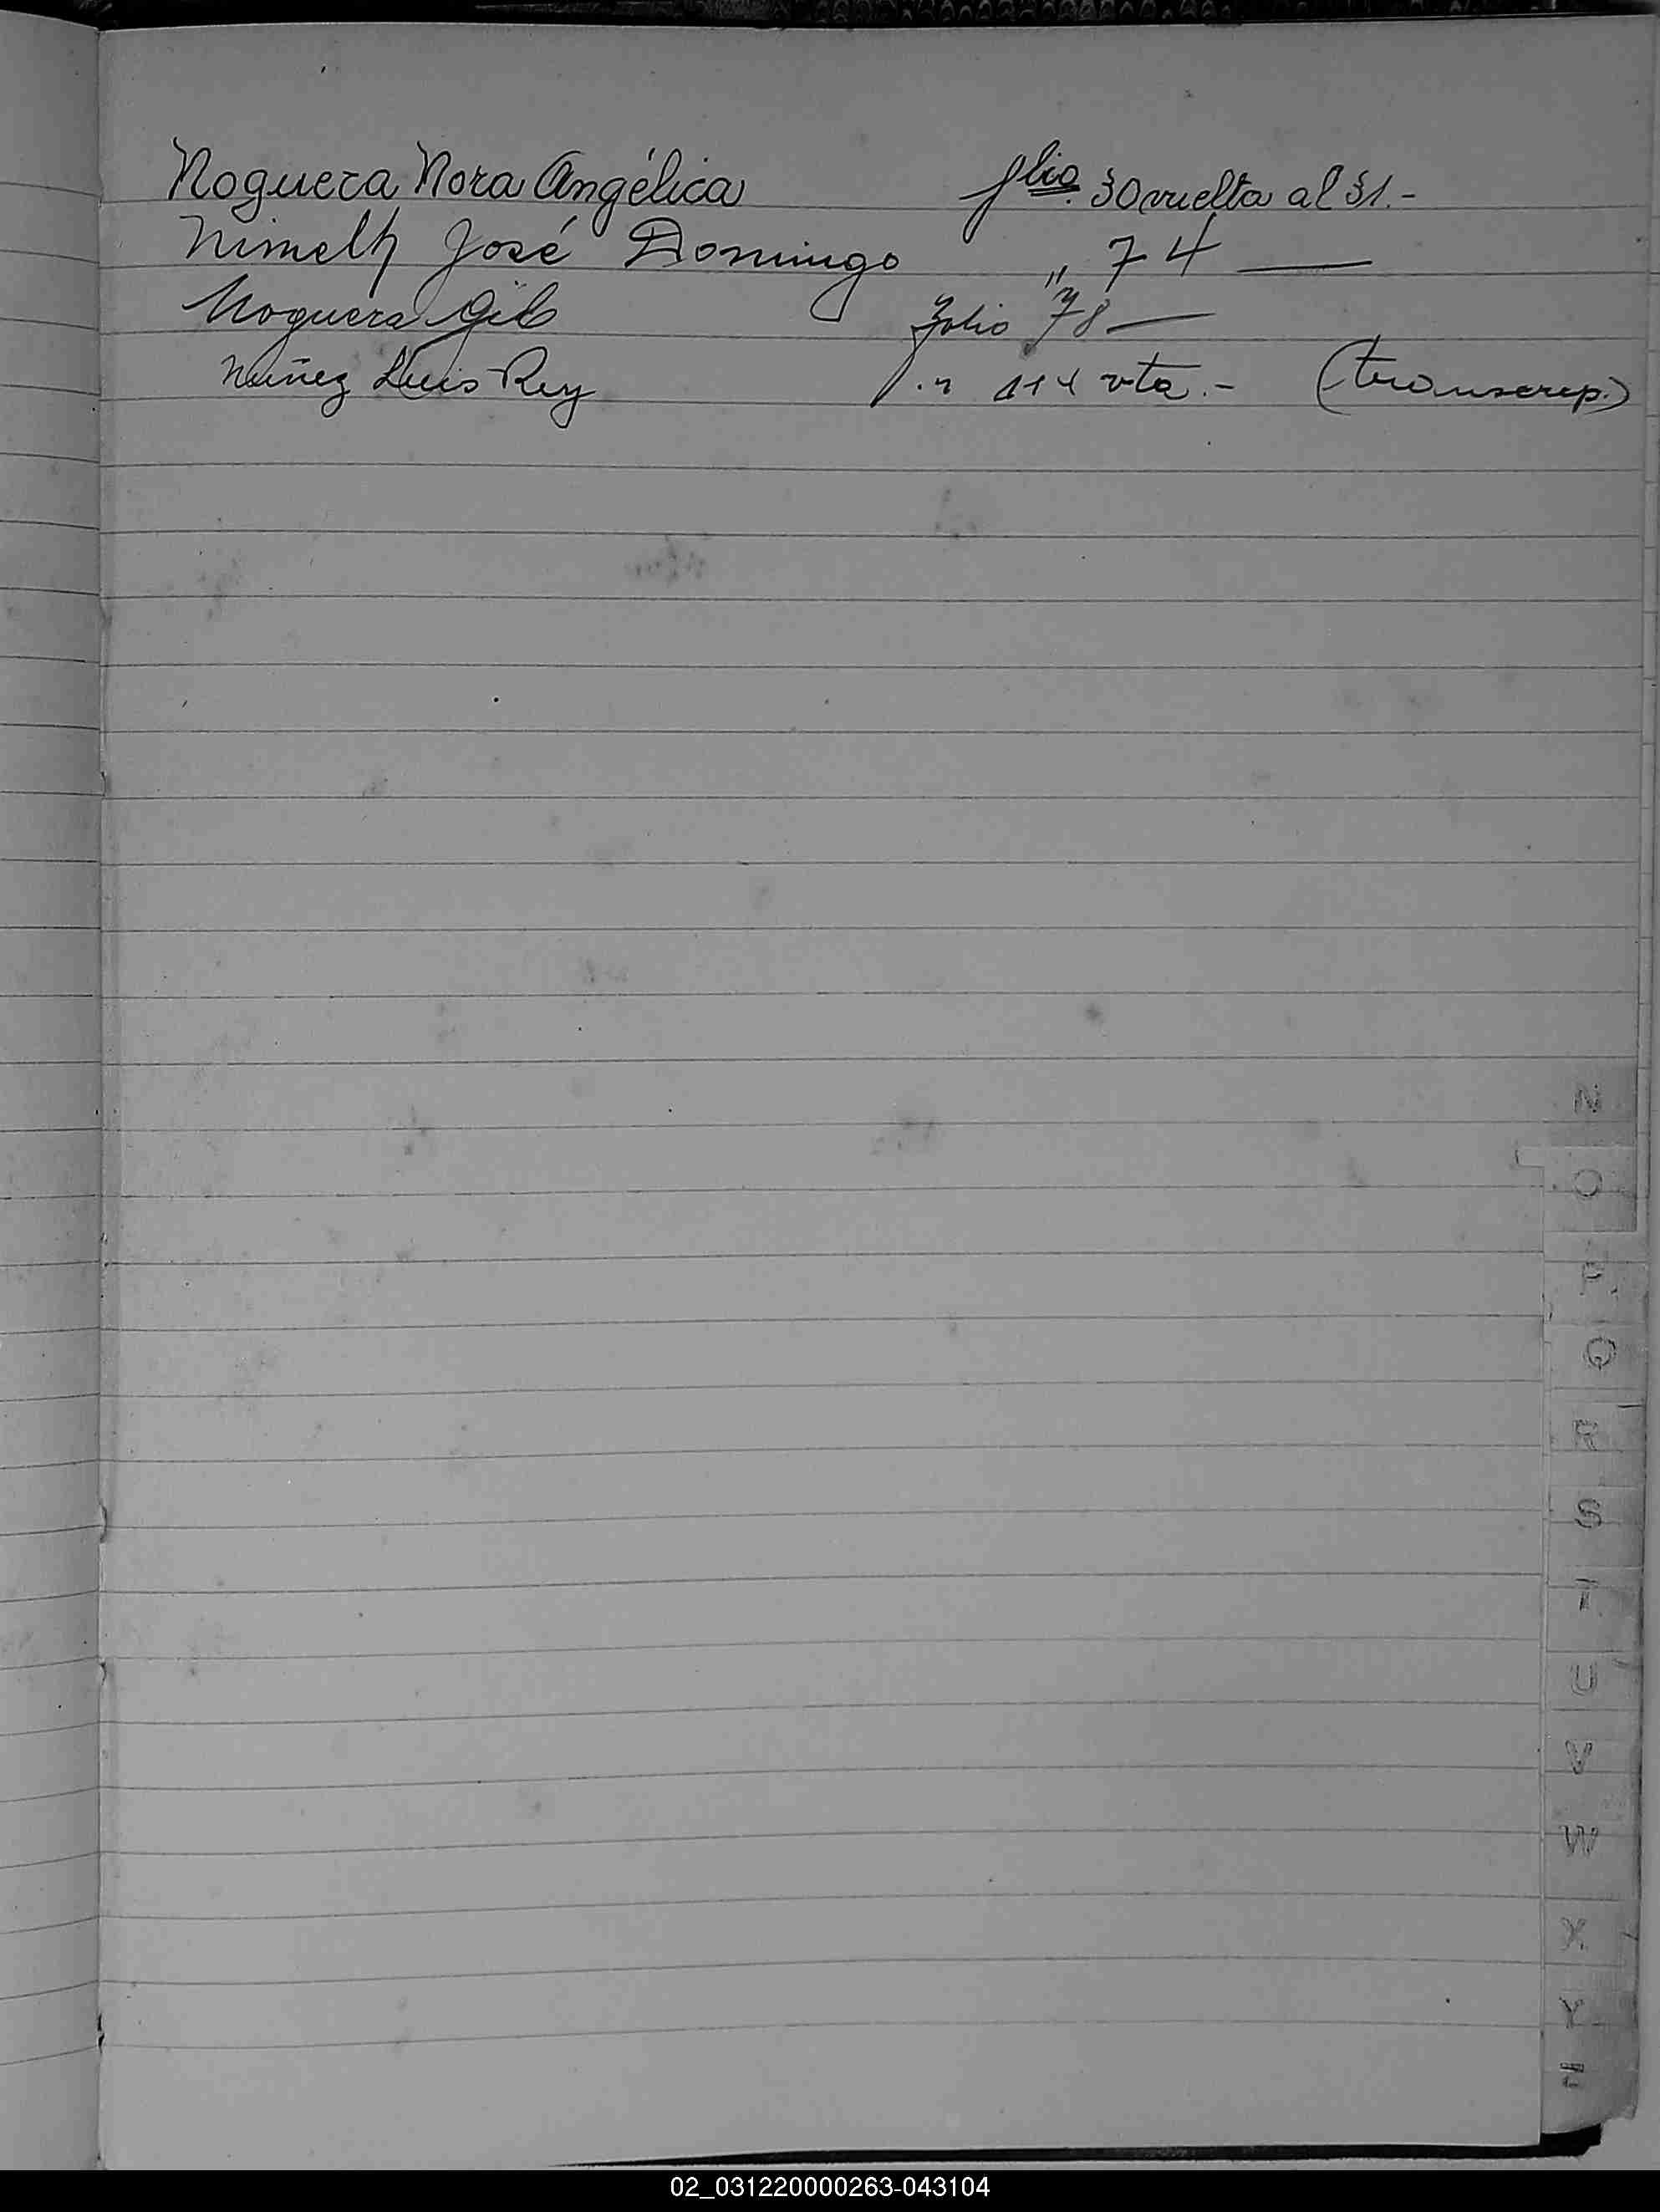 Noguera Nora Angélica flio. 30 vuelta al 31.-
Nimelh José Domingo „ 74 —
Noguera Gil Folio 78 —
Nuñez Luis Rey f. n 114 vta.- (transcrip.)
N
O
P
Q
R
S
T
U
V
W
X
Y
Z
02_031220000263-043104